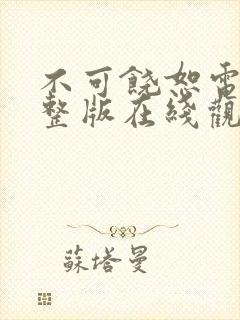 不可饒恕電
整版在綫觀
蘇塔曼